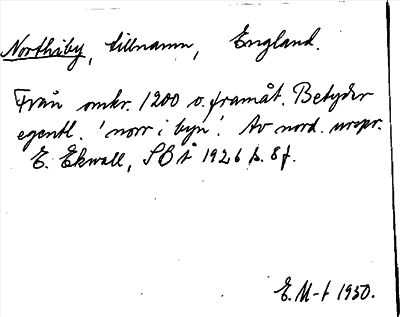 Northiby, tillnamn, England.
Från omkr. 1200 o. framåt. Betyder
egentl. 'norr i byn'. Av nord. urspr.
E. Ekwall, SBÅ 1926 s. 8f.
E. M-t 1950.